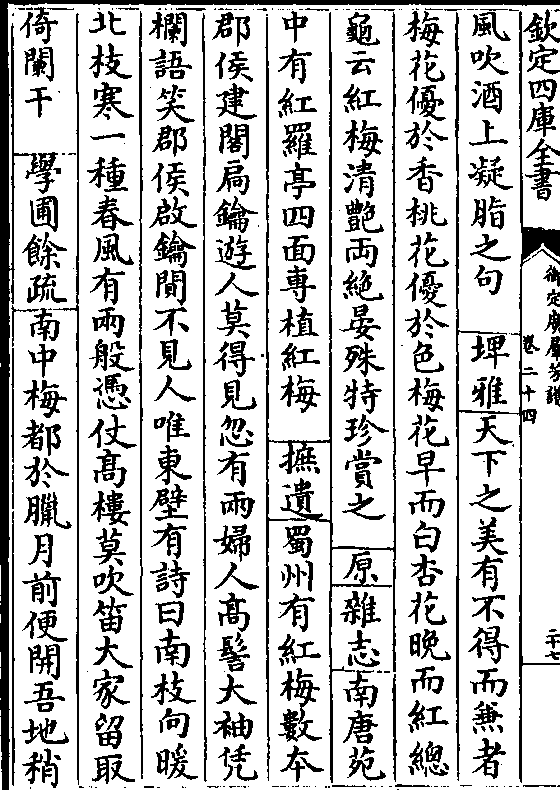 欽定四庫全書
御定廣羣芳譜
卷二十四
二十七
風吹酒上凝脂之句 埤雅 天下之美有不得而兼者
梅花優於香桃花優於色梅花早而白杏花晚而紅總
龜云紅梅清艶兩絶晏殊特珍賞之 原 雜志 南唐苑
中有紅羅亭四面專植紅梅 摭遺 蜀州有紅梅數本
郡侯建閣扃鑰遊人莫得見忽有兩婦人髙髻大袖凭
欄語笑郡侯啟鑰閴不見人唯東壁有詩曰南枝向暖
北枝寒一種春風有兩般憑仗髙樓莫吹笛大家留取
倚闌干 學圃餘疏 南中梅都於臘月前便開吾地稍